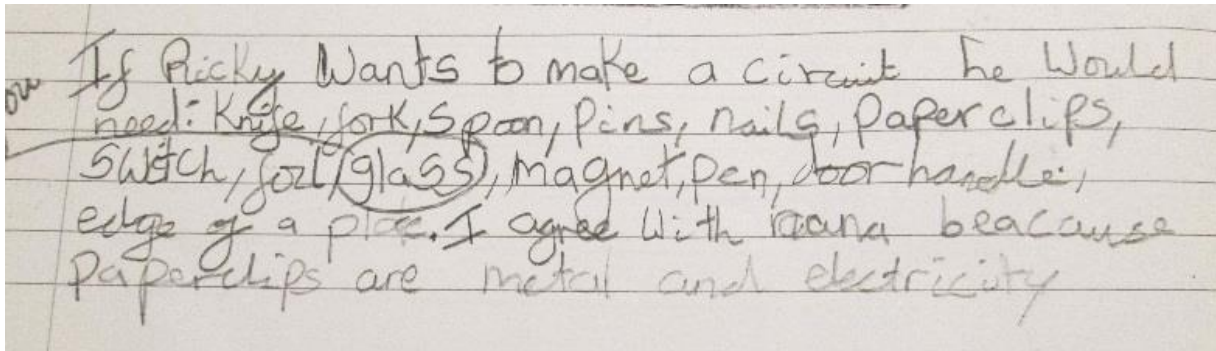 If Ricky Wants to make a circuit he Would
need: Knife, fork, Spoon, Pins, nails, Paper clips,
Switch, foil, glass, magnet, pen, door handle,
edge of a I agree With beacause
Paperclips are metal and electricity